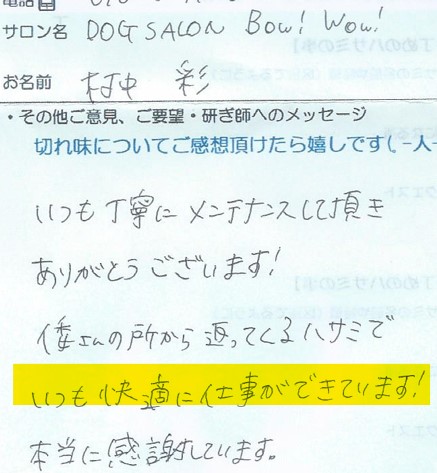 サロン名 DOG SALON Bow! Wow!
お名前 村中 彩
・その他ご意見、ご要望・研ぎ師へのメッセージ
切れ味についてご感想頂けたら嬉しです(-人-
いつも丁寧にメンテナンスして頂き
ありがとうございます!
倭さんの所から返ってくるハサミで
いつも快適に仕事ができています!
本当に感謝しています。